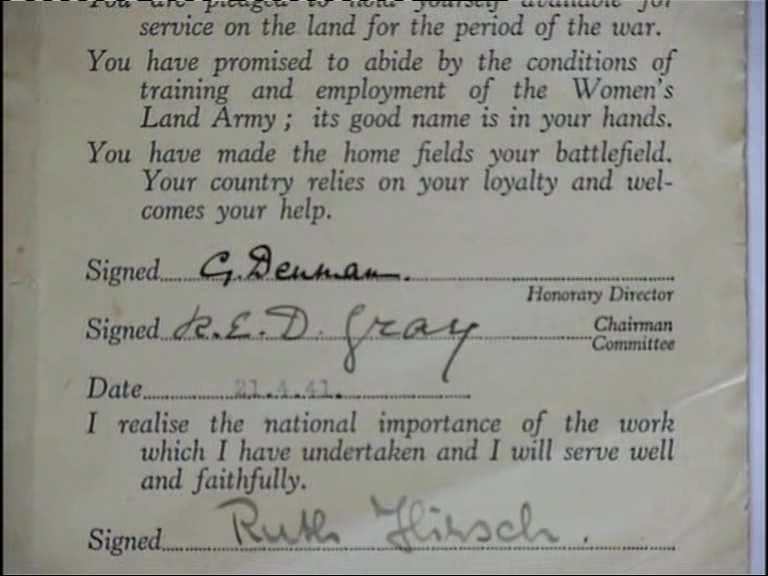 You are pledged to hold yourself available for
service on the land for the period of the war.
You have promised to abide by the conditions of
training and employment of the Women's
Land Army ; its good name is in your hands.
You have made the home fields your battlefield.
Your country relies on your loyalty and wel-
comes your help.
Signed G. Denman.
Honorary Director
Signed R.E.D. Gray Chairman
Committee
Date 21.4.41.
I realise the national importance of the work
which I have undertaken and I will serve well
and faithfully.
Signed Ruth Hirsch.